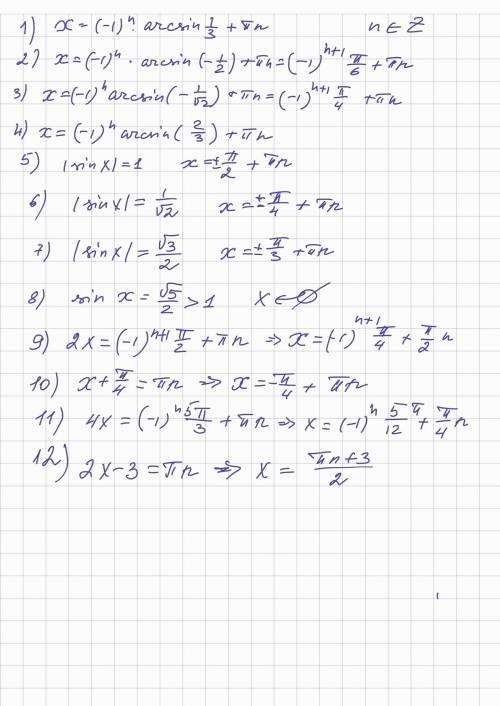 1) x = (-1)ⁿ· arcsin 1/3 + πn n ∈ Z
2) x = (-1)ⁿ · arcsin(-1/2) + πn = (-1)ⁿ⁺¹ π/6 + πn
3) x = (-1)ⁿ arcsin(-1/√2) + πn = (-1)ⁿ⁺¹ π/4 + πn
4) x = (-1)ⁿ arcsin(2/3) + πn
5) |sin x| = 1 x = ± π/2 + πn
6) |sin x| = 1/√2 x = ± π/4 + πn
7) |sin x| = √3/2 x = ± π/3 + πn
8) sin x = √5/2 > 1 x ∈ ∅
9) 2x = (-1)ⁿ⁺¹ π/2 + πn ⇒ x = (-1)ⁿ⁺¹ π/4 + π/2 n
10) x + π/4 = πn ⇒ x = -π/4 + πn
11) 4x = (-1)ⁿ 5π/3 + πn ⇒ x = (-1)ⁿ 5π/12 + π/4 n
12) 2x - 3 = πn ⇒ x = (πn + 3)/2